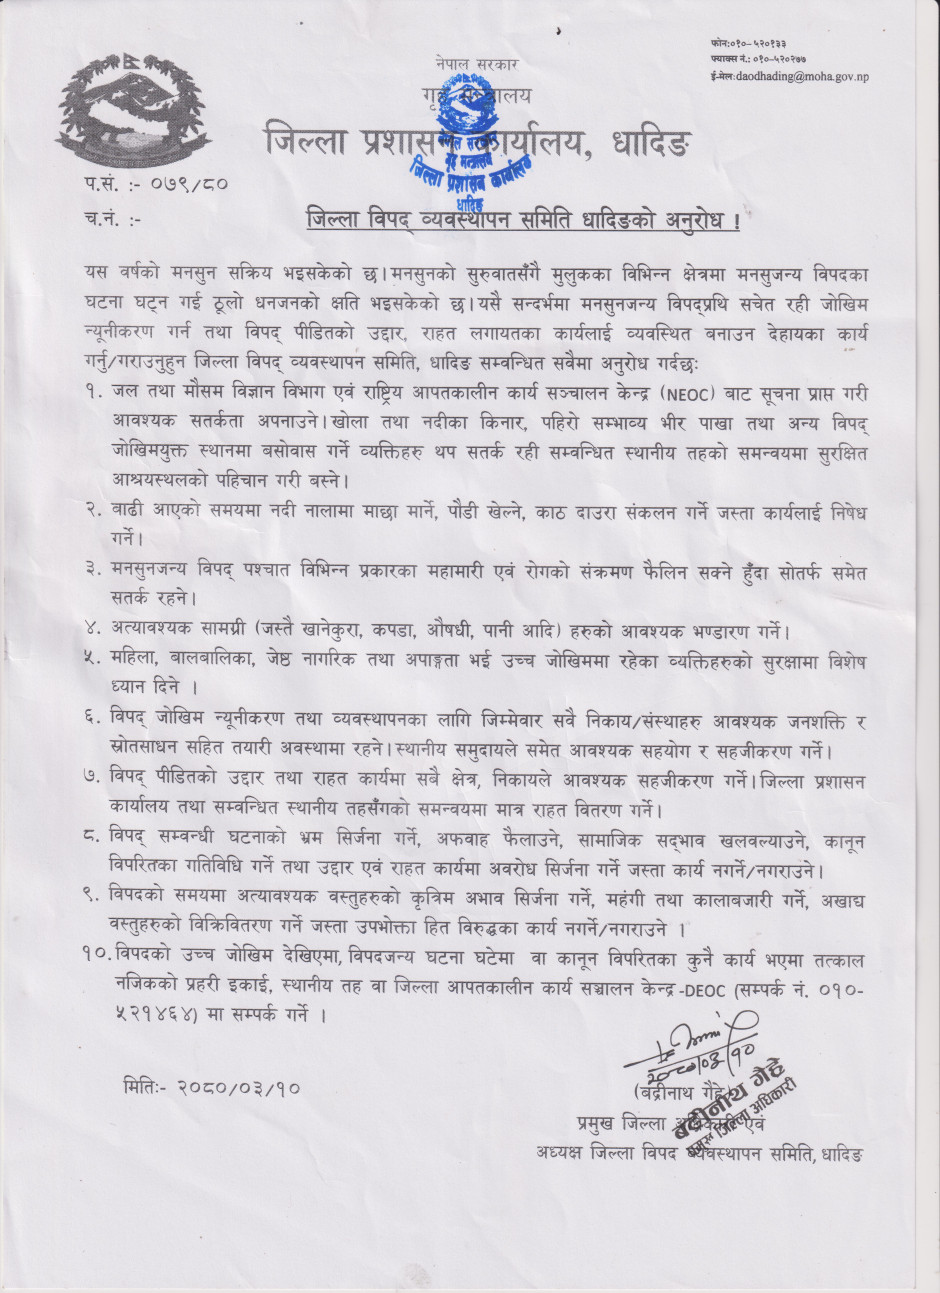 फोन:०१०-५२०१३३
फ्याक्स नं.: ०१०-५२०२७७
ई-मेल:daodhading@moha.gov.np
नेपाल सरकार
गृह मन्त्रालय
जिल्ला प्रशासन कार्यालय, धादिङ
नेपाल सरकार
गृह मन्त्रालय
जिल्ला प्रशासन कार्यालय
धादिङ
प.सं. :- ०७९/८०
च.नं. :-
जिल्ला विपद् व्यवस्थापन समिति धादिङको अनुरोध !
यस वर्षको मनसुन सक्रिय भइसकेको छ।मनसुनको सुरुवातसँगै मुलुकका विभिन्न क्षेत्रमा मनसुजन्य विपदका
घटना घट्न गई ठूलो धनजनको क्षति भइसकेको छ।यसै सन्दर्भमा मनसुनजन्य विपद्प्रथि सचेत रही जोखिम
न्यूनीकरण गर्न तथा विपद् पीडितको उद्दार, राहत लगायतका कार्यलाई व्यवस्थित बनाउन देहायका कार्य
गर्नु/गराउनुहुन जिल्ला विपद् व्यवस्थापन समिति, धादिङ सम्वन्धित सवैमा अनुरोध गर्दछः
१. जल तथा मौसम विज्ञान विभाग एवं राष्ट्रिय आपतकालीन कार्य सञ्चालन केन्द्र (NEOC) बाट सूचना प्राप्त गरी
आवश्यक सतर्कता अपनाउने।खोला तथा नदीका किनार, पहिरो सम्भाव्य भीर पाखा तथा अन्य विपद्
जोखिमयुक्त स्थानमा बसोवास गर्ने व्यक्तिहरु थप सतर्क रही सम्वन्धित स्थानीय तहको समन्वयमा सुरक्षित
आश्रयस्थलको पहिचान गरी बस्ने।
२. वाढी आएको समयमा नदी नालामा माछा मार्ने, पौडी खेल्ने, काठ दाउरा संकलन गर्ने जस्ता कार्यलाई निषेध
गर्ने।
३. मनसुनजन्य विपद् पश्चात विभिन्न प्रकारका महामारी एवं रोगको संक्रमण फैलिन सक्ने हुँदा सोतर्फ समेत
सतर्क रहने।
४. अत्यावश्यक सामग्री (जस्तै खानेकुरा, कपडा, औषधी, पानी आदि) हरुको आवश्यक भण्डारण गर्ने।
५. महिला, बालबालिका, जेष्ठ नागरिक तथा अपाङ्गता भई उच्च जोखिममा रहेका व्यक्तिहरुको सुरक्षामा विशेष
ध्यान दिने ।
६. विपद् जोखिम न्यूनीकरण तथा व्यवस्थापनका लागि जिम्मेवार सवै निकाय/संस्थाहरु आवश्यक जनशक्ति र
स्रोतसाधन सहित तयारी अवस्थामा रहने।स्थानीय समुदायले समेत आवश्यक सहयोग र सहजीकरण गर्ने।
७. विपद् पीडितको उद्दार तथा राहत कार्यमा सबै क्षेत्र, निकायले आवश्यक सहजीकरण गर्ने।जिल्ला प्रशासन
कार्यालय तथा सम्वन्धित स्थानीय तहसँगको समन्वयमा मात्र राहत वितरण गर्ने।
८. विपद् सम्वन्धी घटनाको भ्रम सिर्जना गर्ने, अफवाह फैलाउने, सामाजिक सद्‌भाव खलवल्याउने, कानून
विपरितका गतिविधि गर्ने तथा उद्दार एवं राहत कार्यमा अवरोध सिर्जना गर्ने जस्ता कार्य नगर्ने/नगराउने।
९. विपदको समयमा अत्यावश्यक वस्तुहरुको कृत्रिम अभाव सिर्जना गर्ने, महंगी तथा कालाबजारी गर्ने, अखाद्य
वस्तुहरुको विक्रिवितरण गर्ने जस्ता उपभोक्ता हित विरुद्धका कार्य नगर्ने/नगराउने ।
१०.विपदको उच्च जोखिम देखिएमा, विपदजन्य घटना घटेमा वा कानून विपरितका कुनै कार्य भएमा तत्काल
नजिकको प्रहरी इकाई, स्थानीय तह वा जिल्ला आपतकालीन कार्य सञ्चालन केन्द्र -DEOC (सम्पर्क नं. ०१०-
५२१४६४) मा सम्पर्क गर्ने ।
२०८०/०३/१०
मितिः- २०८०/०३/१०
(बद्रीनाथ गैह्रे)
बद्रीनाथ गैह्रे
प्रमुख जिल्ला अधिकारी
प्रमुख जिल्ला अधिकारी एवं
अध्यक्ष जिल्ला विपद व्यवस्थापन समिति, धादिङ